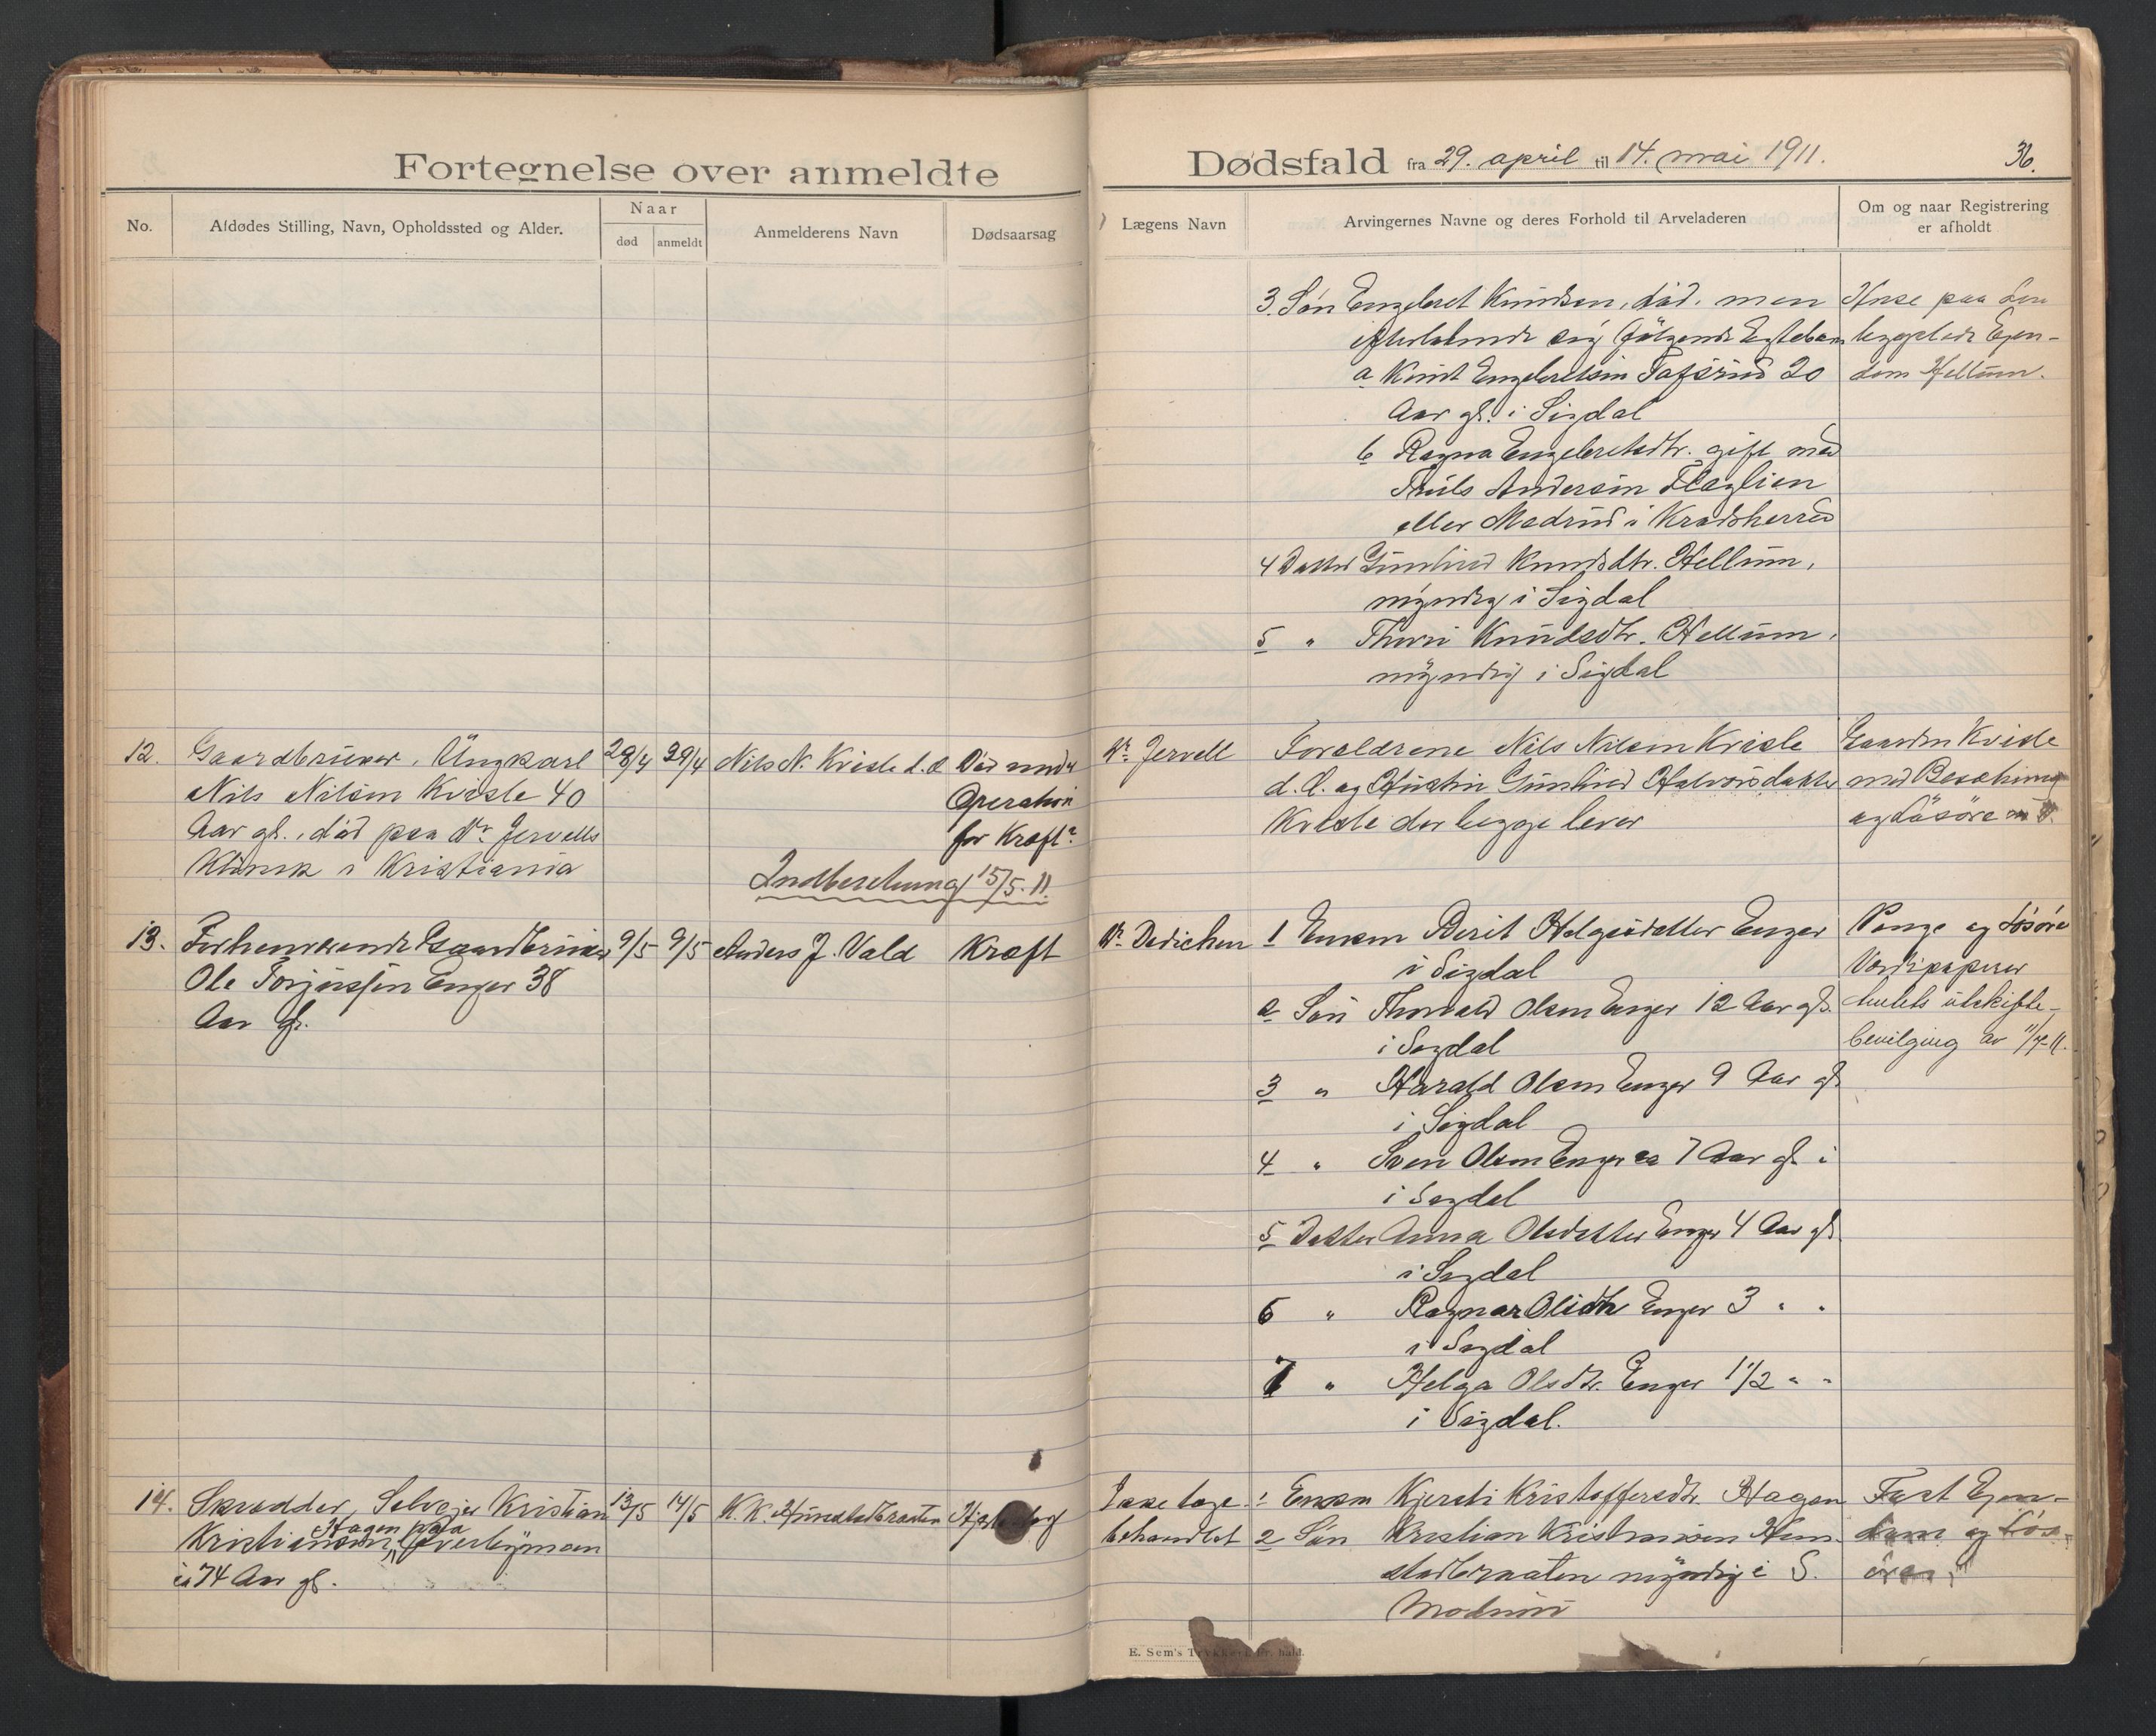 Fortegnelse over anmeldte
Dødsfald fra 29. april til 14. mai 1911.
36.
No.
Afdødes Stilling, Navn, Opholdssted og Alder.
Naar
død
anmeldt
Anmelderens Navn
Dødsaarsag
Lægens Navn
Arvingernes Navne og deres Forhold til Arveladeren
Om og naar Registrering
er afholdt
3. Søn Engebret Knudsen, død, men
efterladende sig følgende Egtebørn
a Knud Engebretsen 20
Aar gl. i Sigdal
b Ragna Engebretsdtr. gift med
Truls Andersen Flaglien
eller Medrud i Krødsherred
4 Datter Gunhild Knudsdtr. Hellum,
myndig i Sigdal
5 " Thuri Knudsdtr. Hellum,
myndig i Sigdal
Huse paa den
bygslede Ejen-
dom Hellum.
12.
Gaardbruker, Ungkarl
Nils Nilsen Kvisle 40
Aar gl., død paa Dr. Jervells
Klinik i Kristiania
28/4
29/4
Nils N. Kvisle d. Æ
Død under
Operation
for Kræft
Indberetning 15/5. 11.
Dr. Jervell
Forældrene Nils Nilsen Kvisle
d. Æ. og Hustru Gunhild Halvorsdatter
Kvisle der begge lever
Gaarden Kvisle
med Besætning
og Løsøre
13.
Forhenværende Gaardbruker
Ole Torjussen Enger 38
Aar gl.
9/5
9/5
Anders J. Vald
Kræft
Dr. Dedichen
1 Enken Berit Helgesdatter Enger
i Sigdal
2 Søn Thorvald Olsen Enger 12 Aar gl.
i Sigdal
3 " Harald Olsen Enger 9 Aar gl
i Sigdal
4 " Sven Olsen Enger ca 7 Aar gl i
i Sigdal
5 Datter Anna Olsdatter Enger 4 Aar gl
i Sigdal
6 " Ragna Olsdtr Enger 3 " "
i Sigdal
7 " Helga Olsdtr. Enger 1 1/2 " "
i Sigdal.
Penge og Løsøre
Værdipapirer
utskifte-
bevilging av 11/7-11.
14.
Skrædder, Selvejer Kristian
Kristiansen Hagen paa Överbymoen
74 Aar gl.
13/5
14/5
K. K. Hunstadbraaten
Hjerteslag
Ikke læge-
behandlet
1 Enken Kjersti Kristoffersdtr. Hagen
2 Søn Kristian Kristiansen Hun-
stadbraaten myndig i S.
Modum
Fast Ejen-
dom og Løs-
øre
E. Sem's Trykkeri, Fr. hald.